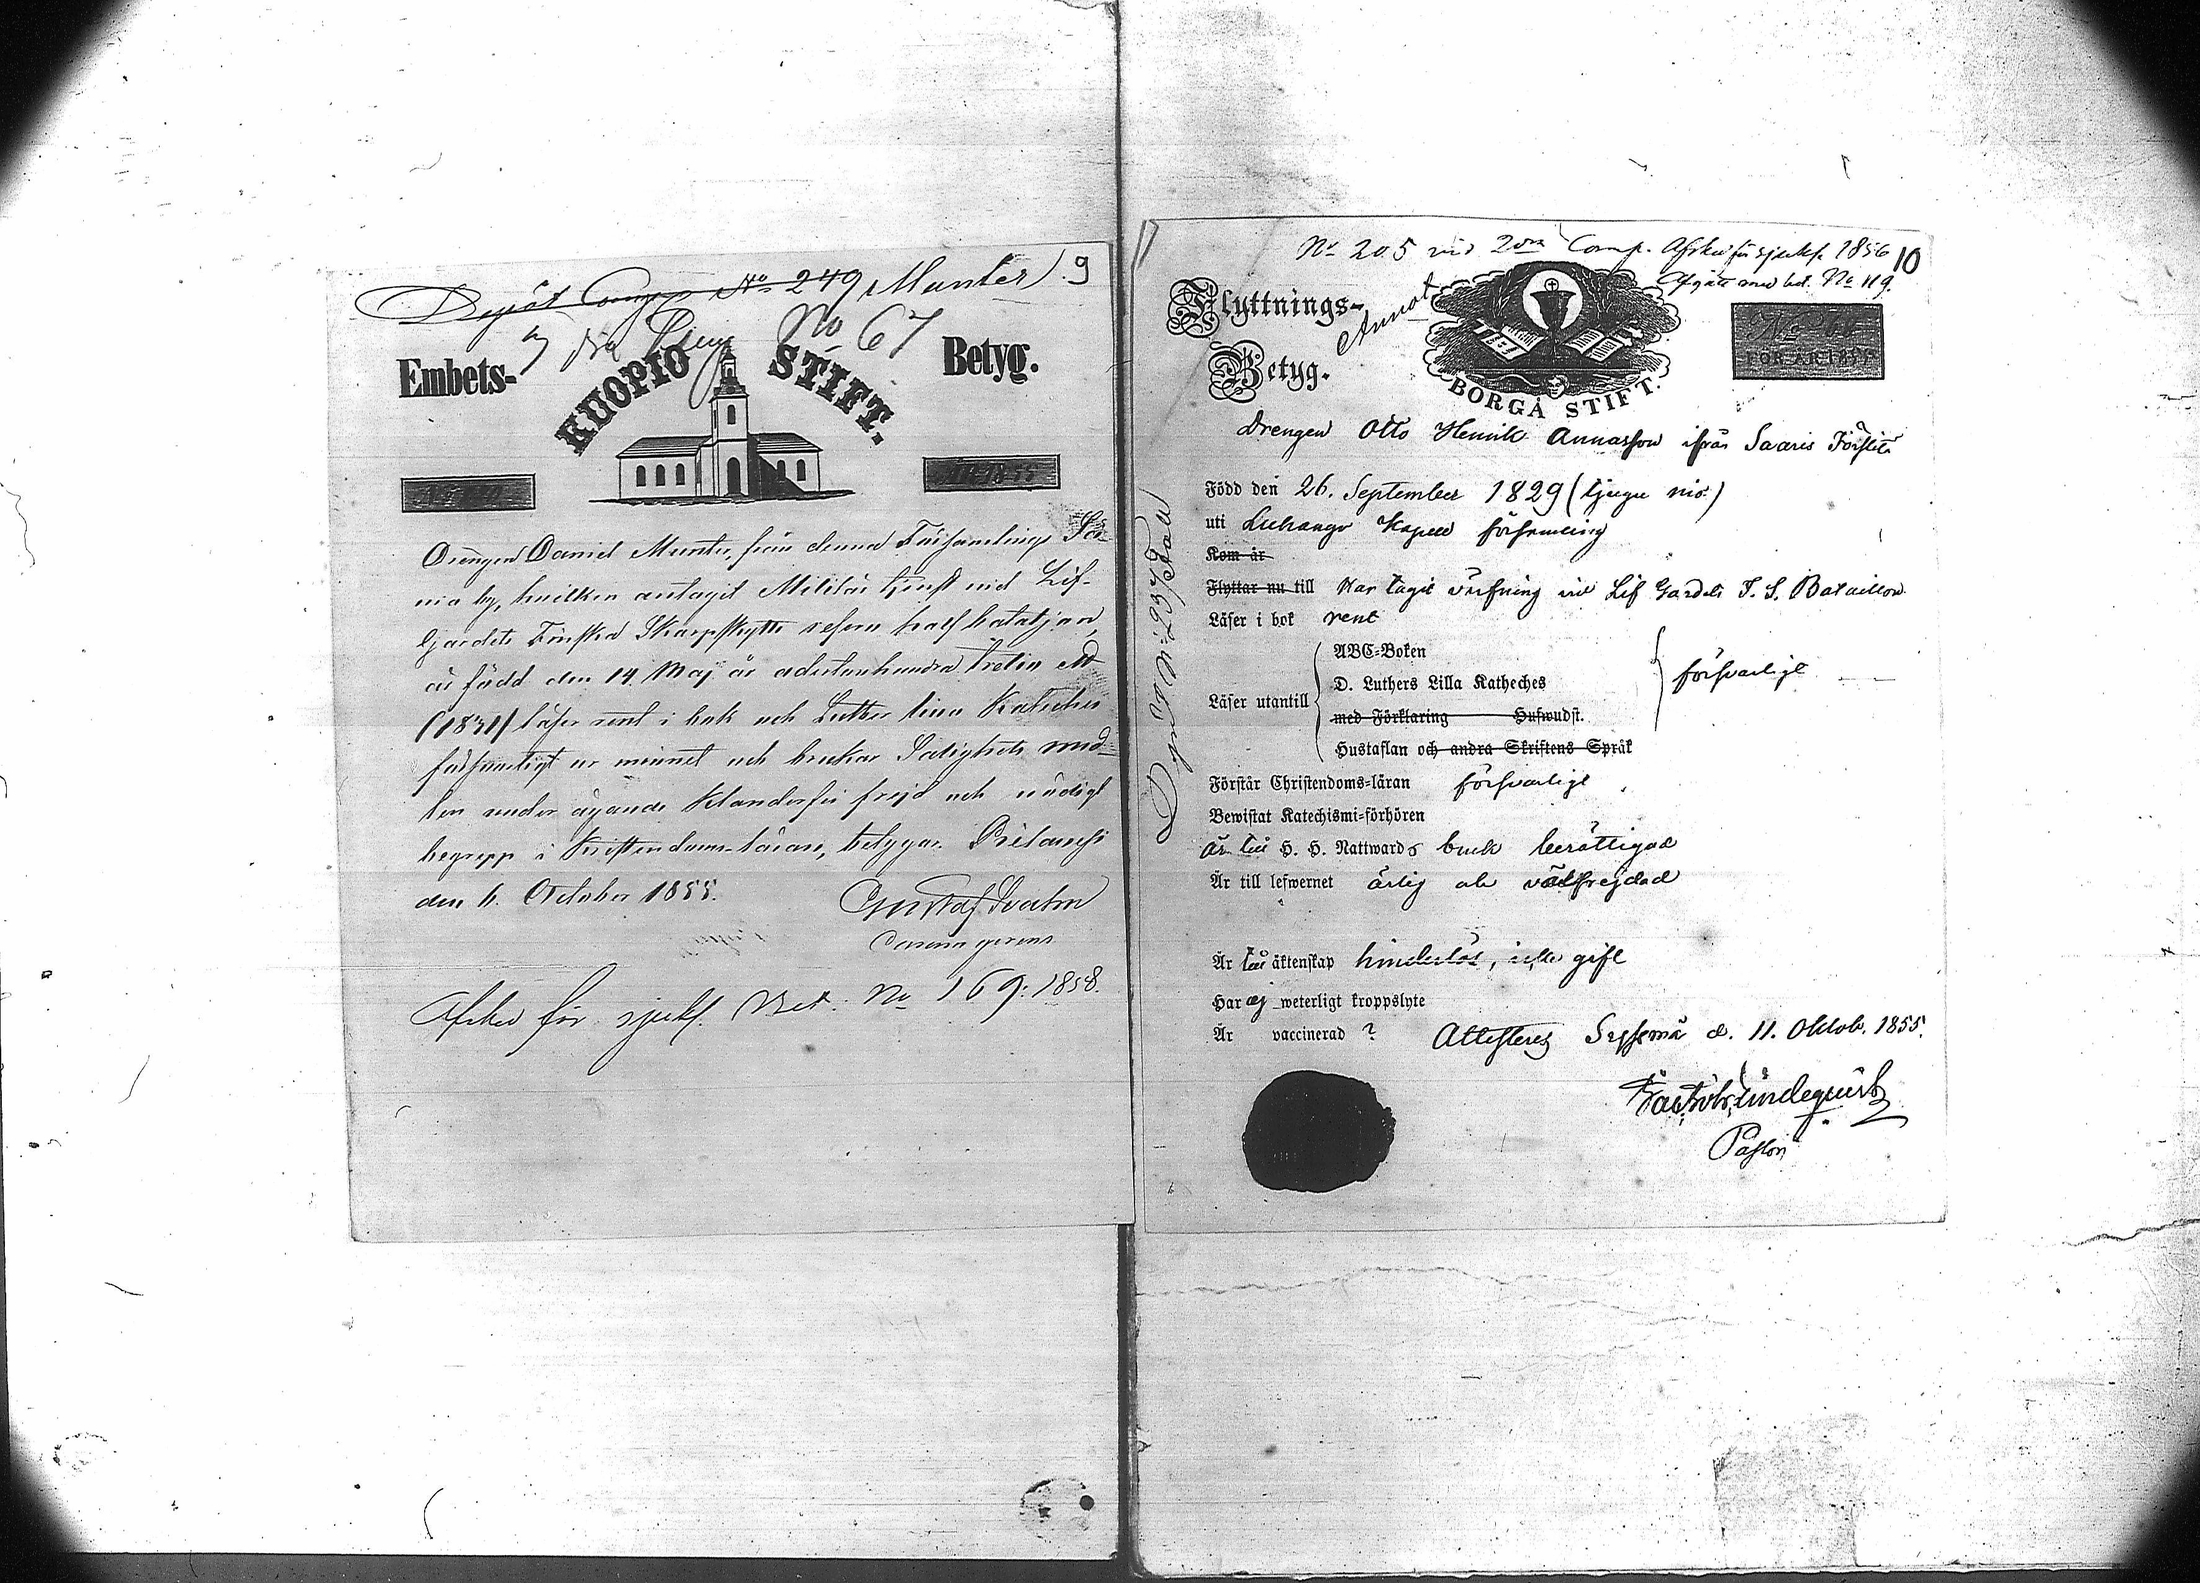 Depôt Comp. No 249 Munter 9
No 67
Embets- Betyg.
KUOPIO STIFT.
ÅR 1855
Drengen Daniel Munter, från denna Församlings
by, hvilken antagit Militär tjenst vid Lif-
Gardets Finska Skarpskytte reserv half bataljon,
är född den 14 Maj år adertonhundra tretio ett
(1831) läser rent i bok och Luthers lilla Kateches
försvarligt ur minnet och brukar Salighets med-
len under ägande klanderfri frejd och nödigt
begrepp i Kristendoms-läran, betygar. Pielavesi
den 6. October 1855.
Gustaf
Afsked för sjukl. Bet. No 169: 1858.
No 205 vid 2dra Comp. Afsked för sjukl. 1856 10
Afgått med bet. No 119.
Flyttnings- Annot
Betyg.
BORGÅ STIFT.
FÖR ÅR 1855
Drengen Otto Henrik Annasson ifrån Saaris
Född den 26. September 1829 (tjugu nio)
uti Luhango Kapell församling
Kom år
Flyttar nu till Har tagit värfning vid Lif Gardets F. S. Bataillon
Läser i bok rent
ABC-Boken
D. Luthers Lilla Katheches försvarligt
Läser utantill
med Förklaring Hufwudst.
Hustaflan och andra Skriftens Språk
Förstår Christendoms-läran försvarligt
Bewistat Katechismi-förhören
Är till H. H. Nattwards bruk berättigad
Är till lefwernet ärlig och välfrejdad
Är till äktenskap hinderlös, icke gift
Har ej weterligt kroppslyte
Är vaccinerad ? Attesterez Sysmä d. 11. Oktob. 1855.
Lindequist
Pastor